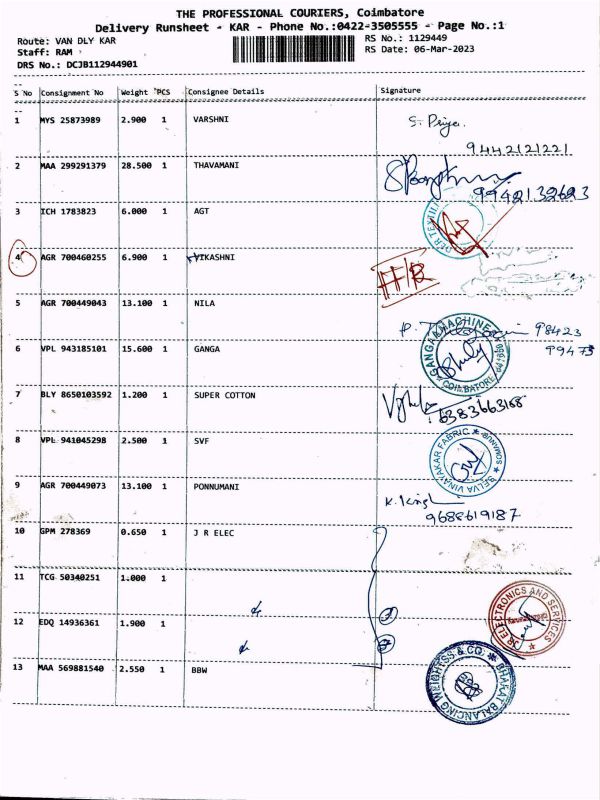 THE PROFESSIONAL COURIERS, Coimbatore
Delivery Runsheet - KAR - Phone No.:0422-3505555 - Page No.:1
Route: VAN DLY KAR
Staff: RAM
DRS No.: DCJB112944901
RS No.: 1129449
RS Date: 06-Mar-2023
S No Consignment No Weight PCS Consignee Details Signature
1 MYS 25873989 2.900 1 VARSHNI S. Priya.
9442121221
2 MAA 299291379 28.500 1 THAVAMANI
9942132623
3 ICH 1783823 6.000 1 AGT
4 AGR 700460255 6.900 1 VIKASHNI
5 AGR 700449043 13.100 1 NILA
98423
99473
6 VPL 943185101 15.600 1 GANGA
GANGAA MACHINE
COIMBATORE
7 BLY 8650103592 1.200 1 SUPER COTTON
6383663168
8 VPL 941045298 2.500 1 SVF
SELVA VINAYAKAR FABRIC
SOMANUR
9 AGR 700449073 13.100 1 PONNUMANI
9688619187
10 GPM 278369 0.650 1 J R ELEC
11 TCG 50340251 1.000 1
JR ELECTRONICS AND SERVICES
12 EDQ 14936361 1.900 1
13 MAA 569881540 2.550 1 BBW
BHARAT BALANCING WEIGHTSS & CO.